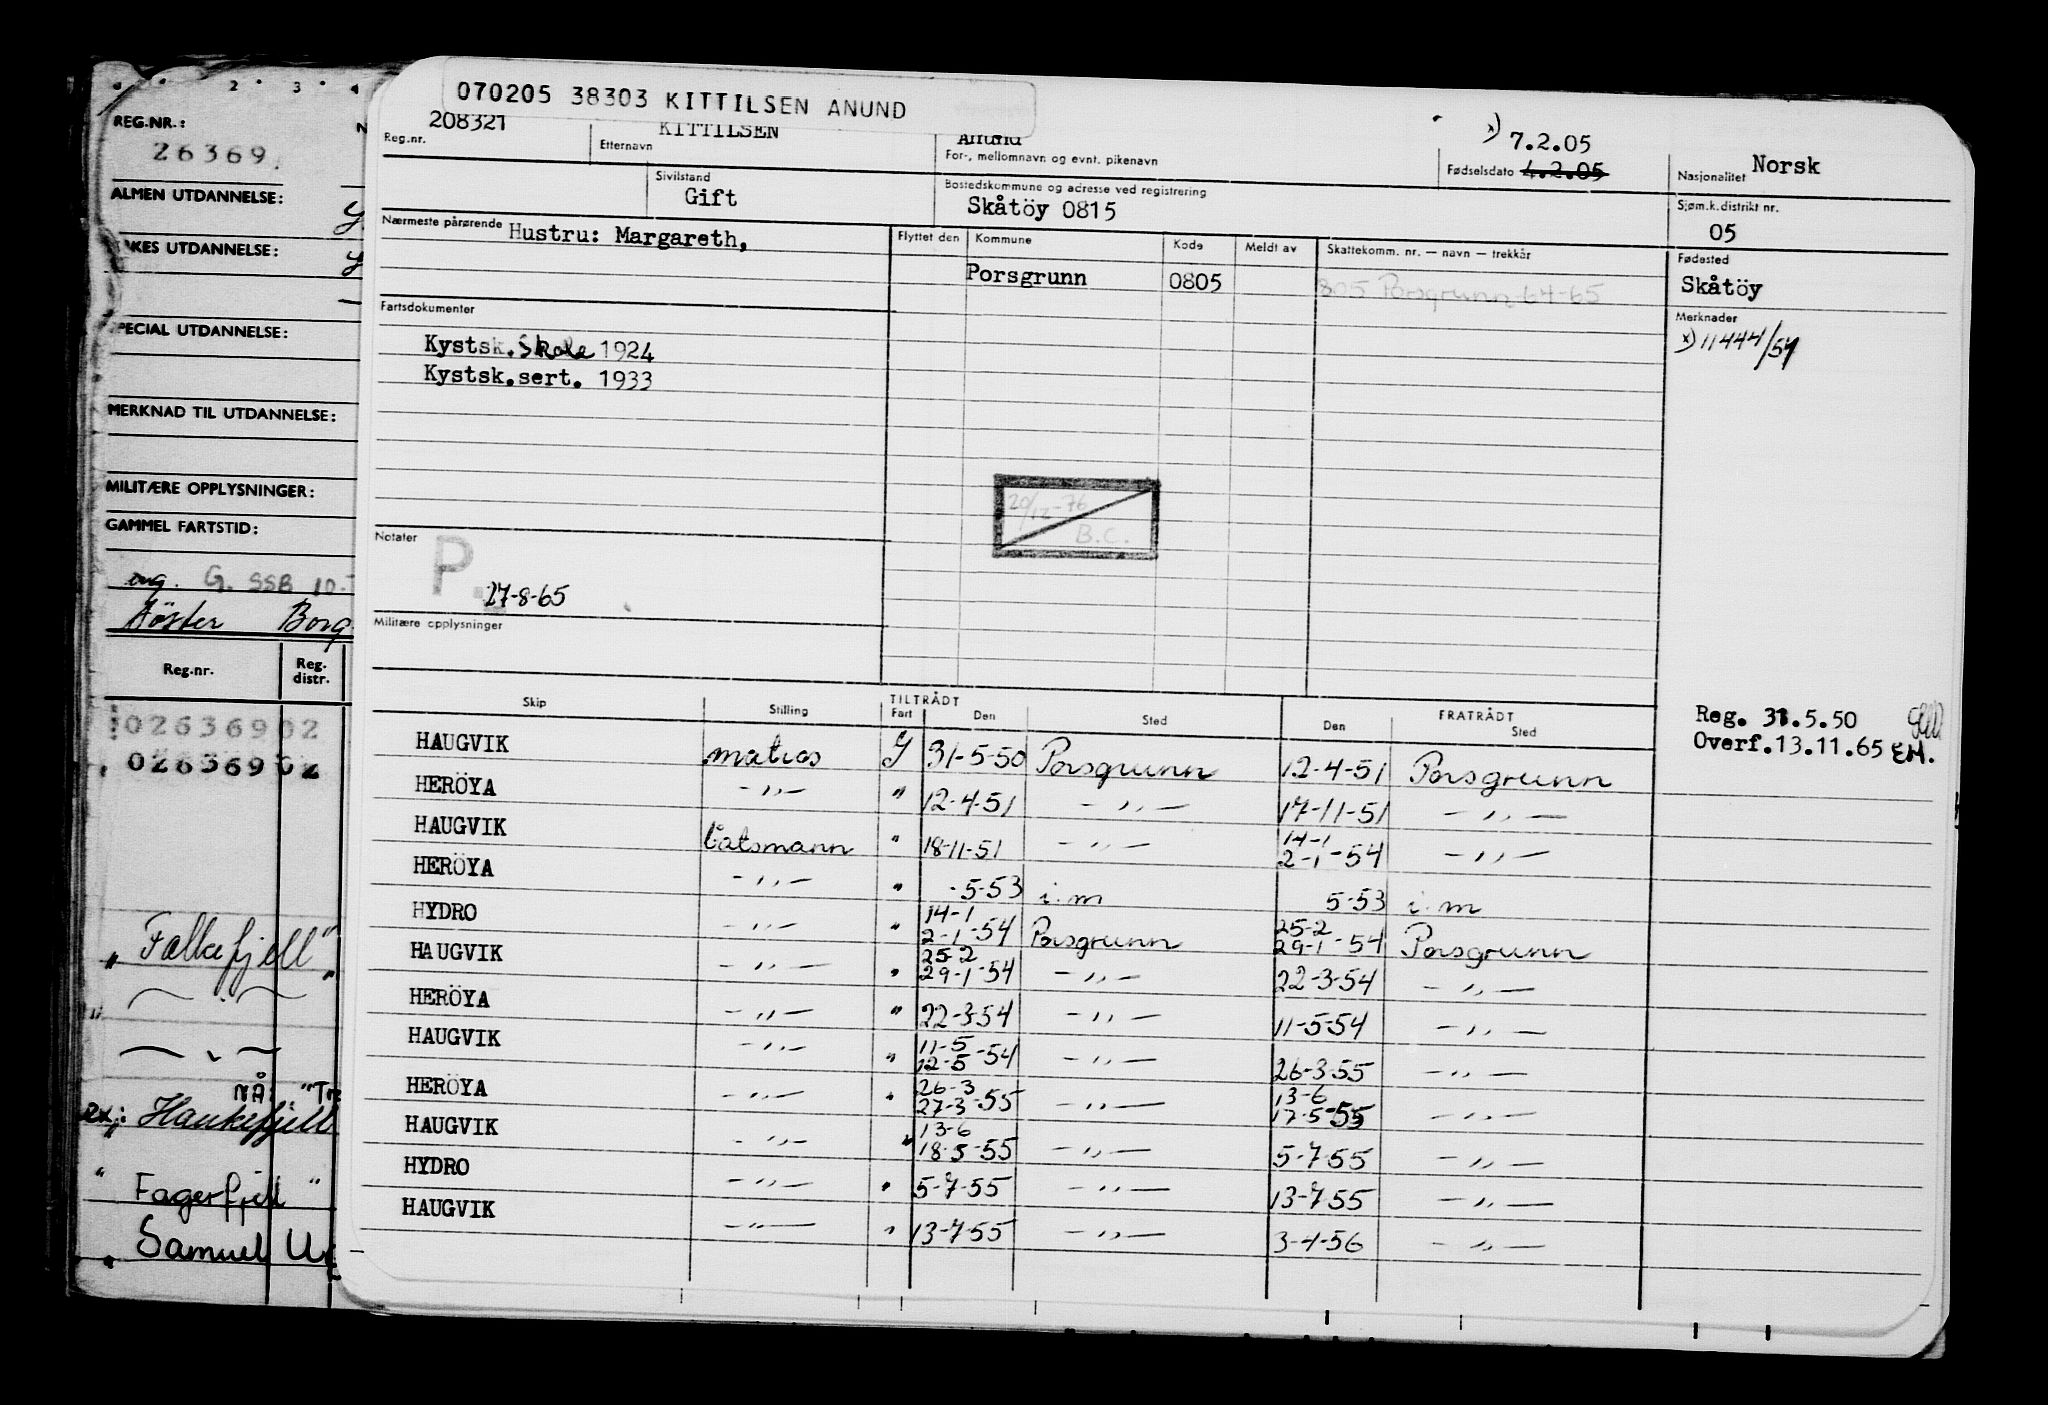 070205 38303 KITTILSEN ANUND
208321 KITTILSEN Anund x) 7.2.05 Norsk
Reg.nr. Etternavn For-, mellomnavn og evnt. pikenavn Fødselsdato 4.2.05 Nasjonalitet
Sivilstand Bostedskommune og adresse ved registrering Sjøm.k.distrikt nr.
Gift Skåtöy 0815 05
Nærmeste pårørende Hustru: Margareth, Flyttet den Kommune Kode Meldt av Skattekomm. nr. — navn — trekkår Fødested
Porsgrunn 0805 805 Porsgrunn 64-65 Skåtöy
Fartsdokumenter Merknader
Kystsk.Skole 1924 x) 11444/54
Kystsk.sert. 1933
20/12-76
B.C.
Notater
P.
27-8-65
Militære opplysninger
Skip Stilling TILTRÅDT FRATRÅDT
Fart Den Sted Den Sted
Reg. 31.5.50
Overf.13.11.65 EM.
HAUGVIK matros Y 31-5-50 Porsgrunn 12-4-51 Porsgrunn
HERÖYA -„- " 12-4-51 -„- 17-11-51 -„-
HAUGVIK båtsmann " 18-11-51 -„- 14-1 2-1-54 -„-
HERÖYA -„- " -5-53 i.m 5-53 i.m
HYDRO -„- " 14-1 2-1-54 Porsgrunn 25-2 29-1-54 Porsgrunn
HAUGVIK -„- " 25-2 29-1-54 -„- 22-3-54 -„-
HERÖYA -„- " 22-3-54 -„- 11-5-54 -„-
HAUGVIK -„- " 11-5 12-5-54 -„- 26-3-55 -„-
HERÖYA -„- " 26-3 27-3-55 -„- 13-6 17-5-55 -„-
HAUGVIK -„- " 13-6 18-5-55 -„- 5-7-55 -„-
HYDRO -„- " 5-7-55 -„- 13-7-55 -„-
HAUGVIK -„- " 13-7-55 -„- 3-4-56 -„-
2 3 4
REG.NR.: N
26369
ALMEN UTDANNELSE:
KES UTDANNELSE:
SPECIAL UTDANNELSE:
MERKNAD TIL UTDANNELSE:
MILITÆRE OPPLYSNINGER:
GAMMEL FARTSTID:
G. SSB 10.
Borg
Reg.nr. Reg. distr.
02636902
02636902
„ Falkefjell"
NÅ: "T
ex: Haukefjell
" Fagerfjell "
„ Samuel U